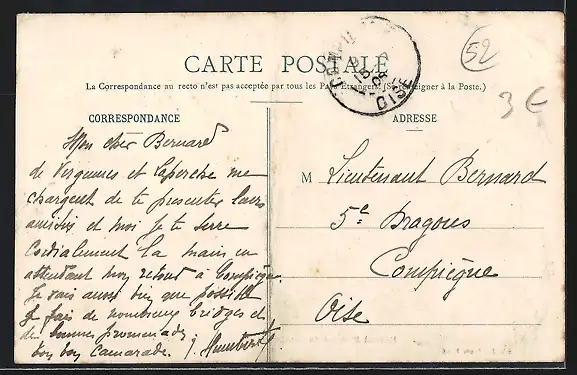 CARTE POSTALE
La Correspondance au recto n'est pas acceptée par tous les Pays Etrangers. (Se renseigner à la Poste.)
CORRESPONDANCE
Mon cher Bernard
de Vergennes et Laperche me
chargent de te presenter leurs
amitiés et moi je te serre
Cordialement la main en
attendant mon retour à Compiègne.
Je vais aussi bien que possible
Je fais de nombreux bridges et
de bonnes promenades.
ton bon camarade. J. Humbert
ADRESSE
M Lieutenant Bernard
5e Dragons
Compiègne
Oise
OISE
52
3 €